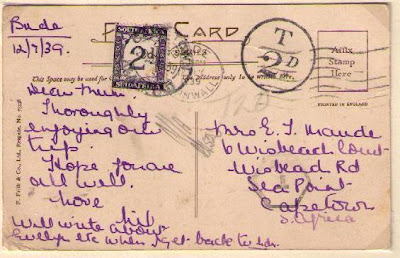 Bude
12/7/39.
POST CARD
SOUTH AFRICA
2d
SUIDAFRIKA
CORNWALL
T
2D
Affix
Stamp
Here
PRINTED IN ENGLAND
This Space may be used for
The Address only to be written here.
F. Frith & Co., Ltd., Reigate, No.
Dear Mum,
Thoroughly
enjoying our
trip.
Hope you are
all well.
Love
Will write about
Evelyn etc when I get back to Ldn.
Mrs E. T. Maude
6 Wisbeach Court
Wisbead Rd
Sea Point
Capetown
S. Africa